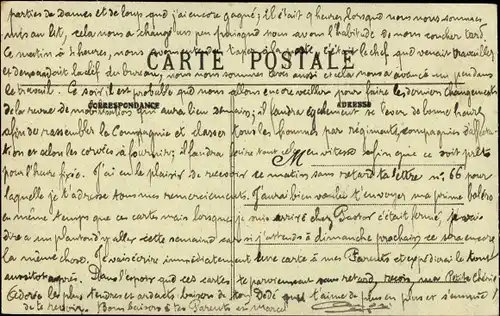 parties de Dames et de loup que j'ai encore gagné; il était 9 heures lorsque nous nous sommes
mis au lit, cela nous a changé un peu puisque nous avons l'habitude de nous coucher tard.
Ce matin à heures, nous avons entendu taper à la porte, c'était le chef qui venait travailler
et demandait la clef du bureau, nous nous sommes levés aussi et cela nous a avancé un peu dans
CARTE POSTALE
le travail. Ce soir, il est probable que nous allons encore veiller pour faire les derniers changements
CORRESPONDANCE
ADRESSE
de la revue de mobilisation qui aura lieu demain; il faudra également se lever de bonne heure
afin de rassembler la Compagnie et classer tous les hommes par régiments, compagnies d'affecta-
tion et selon les corvées à fournir; il faudra faire tout et en vitesse afin que ce soit prêt
M
pour l'heure fixée. J'ai eu le plaisir de recevoir ce matin sans retard ta lettre n° 66 pour
laquelle je t'adresse tous mes remerciements. J'aurai bien voulu t'envoyer ma prime
en même temps que ces cartes mais lorsque je suis arrivé chez Pastor c'était fermé, je vais
dire à un planton d'y aller cette semaine sinon j'attends à dimanche prochain, ce sera encore
la même chose. Je vais écrire immédiatement une carte à mes Parents et expédierai le tout
aussitôt après. Dans l'espoir que ces cartes te parviennent sans retard, reçois ma Petite Chérie
Adorée les plus tendres et ardents baisers de ton Dédé qui t'aime de plus en plus et s'ennuie
de te revoir. Bons baisers à tes Parents en merci